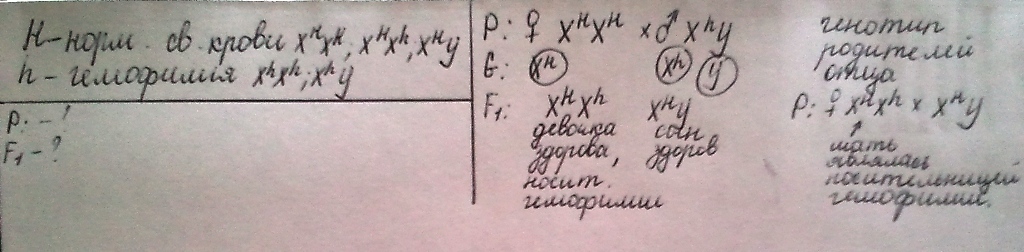 H-норм. св. крови XᴴXᴴ; XᴴXʰ, Xᴴy
h - гемофилия XʰXʰ; Xʰy
P: - ?
F₁ - ?
P: ♀ XᴴXᴴ × ♂ Xʰy
G: Xᴴ Xʰ y
F₁: XᴴXʰ Xᴴy
девочка сын
здорова, здоров
носит.
гемофилии
генотип
родителей
отца
P: ♀ XᴴXʰ × Xᴴy
↑
мать
являлась
носительницей
гемофилии.